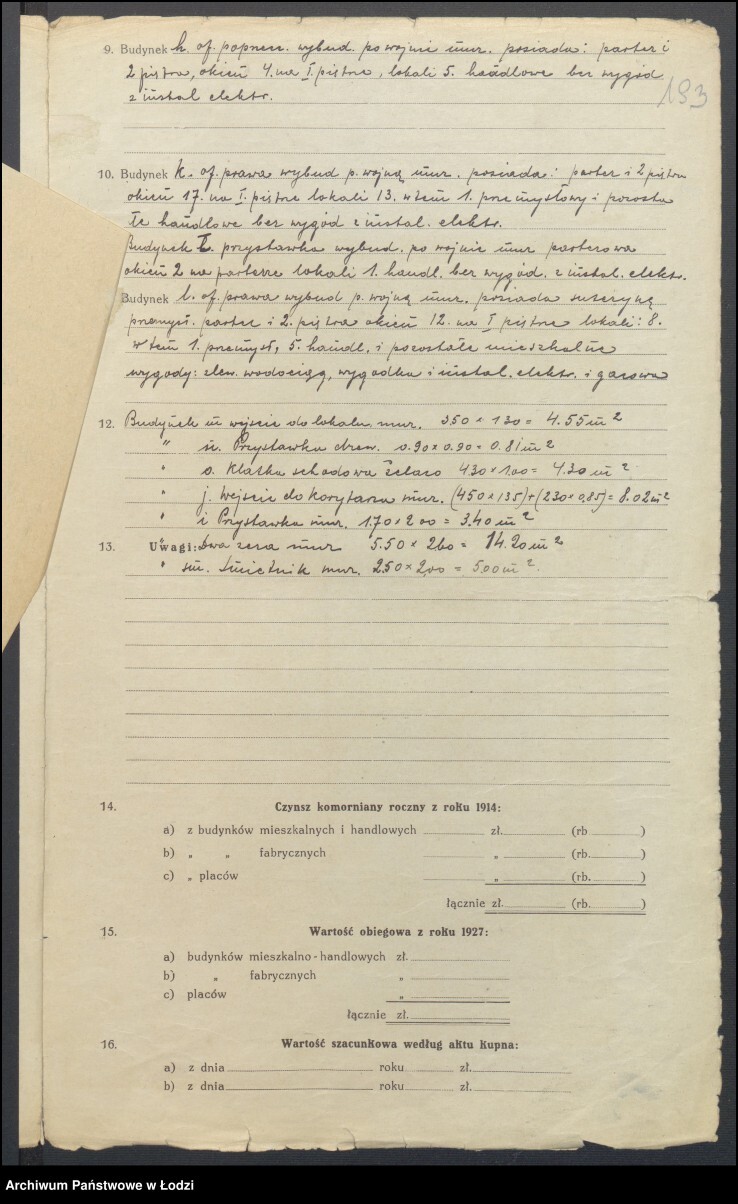 193
9. Budynek h. of. poprzecz. wybud. po wojnie mur. posiada: parter i
2 piętra, okien 4. na I. piętrze, lokali 5. handlowe bez wygód
z instal elektr.
10. Budynek k. of. prawa wybud p. wojną mur. posiada: parter i 2 piętra
okien 17. na I. piętrze lokali 13. w tem 1. przemysłowy i pozosta
łe handlowe bez wygód z instal. elektr.
Budynek Ł. przystawka wybud. po wojnie mur parterowa
okien 2 na parterze lokali 1. handl. bez wygód. z instal. elektr.
Budynek l. of. prawa wybud p. wojną mur. posiada suterynę
przemysł. parter i 2. piętra okien 12. na I piętrze lokali: 8.
w tem 1. przemysł, 5. handl. i pozostałe mieszkalne
wygody: zlew. wodociąg, wygódka i instal. elektr. i gazowa
12. Budynek m wejście do lokalu mur. 3.50 × 1.30 = 4.55 m²
" n. Przystawka drew. 0.90 × 0.90 = 0.81 m²
" o. Klatka schodowa żelazo 430 × 1.00 = 4.30 m²
" j. Wejście do korytarza mur. (450 × 135) + (230 × 0.85) = 8.02 m²
" i Przystawka mur. 1.70 × 2.00 = 3.40 m²
13. Uwagi: Dwa zera mur 5.50 × 260 = 14.20 m²
" śm. Śmietnik mur. 2.50 × 2.00 = 5.00 m².
14. Czynsz komorniany roczny z roku 1914:
a) z budynków mieszkalnych i handlowych zł. (rb )
b) „ „ fabrycznych „ (rb. )
c) „ placów „ (rb. )
łącznie zł. (rb. )
15. Wartość obiegowa z roku 1927:
a) budynków mieszkalno-handlowych zł.
b) „ fabrycznych „
c) placów „
łącznie zł.
16. Wartość szacunkowa według aktu kupna:
a) z dnia roku zł.
b) z dnia roku zł.
Archiwum Państwowe w Łodzi